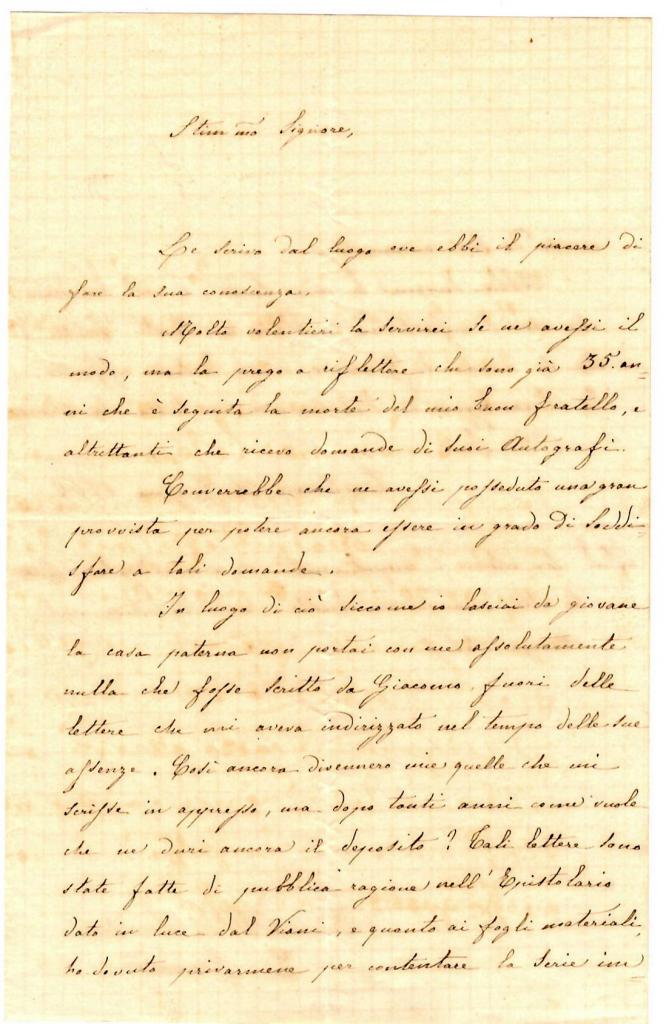 Stim mo Signore,
Le scrivo dal luogo ove ebbi il piacere di
fare la sua conoscenza.
Molto volentieri la servirei se ne avessi il
modo, ma la prego a riflettere che sono già 35. an=
ni che è seguita la morte del mio buon fratello, e
altrettanti che ricevo domande di suoi Autografi.
Converrebbe che ne avessi posseduto una gran
provvista per potere ancora essere in grado di Soddi=
sfare a tali domande.
In luogo di ciò siccome io lasciai da giovane
la casa paterna non portai con me assolutamente
nulla che fosse scritto da Giacomo, fuori delle
lettere che mi aveva indirizzato nel tempo delle sue
assenze. Così ancora divennero mie quelle che mi
scrisse in appresso, ma dopo tanti anni come vuole
che ne duri ancora il deposito? Tali lettere sono
state fatte di pubblica ragione nell' Epistolario
dato in luce dal Viani, e quanto ai fogli materiali,
ho dovuto privarmene per contentare la serie im